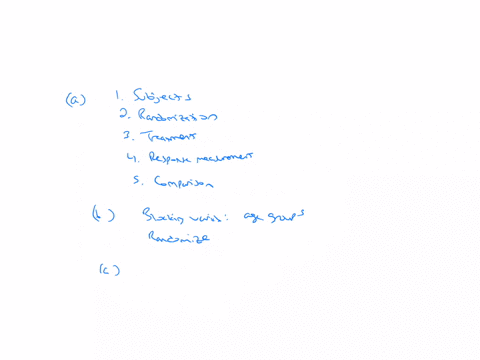 (a) 1. Subjects
2. Randomization
3. Treatment
4. Response measurement
5. Comparison
(b) Blocking variable: age groups
Randomize
(c)